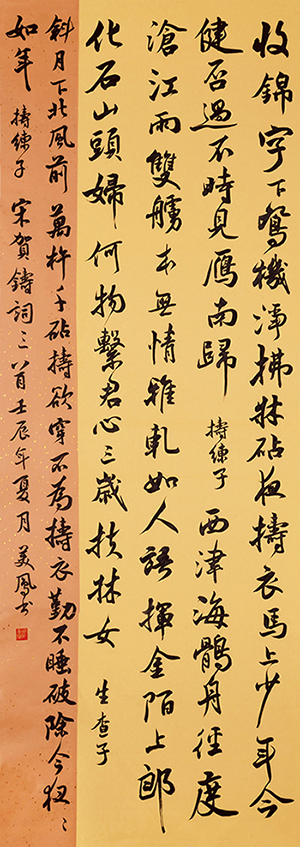 收錦字下鴛機淨拂牀砧夜擣衣馬上少年今
健否過瓜時見雁南歸 擣練子 西津海鶻舟徑度
滄江雨雙艣本無情雅軋如人語揮金陌上郎
化石山頭婦何物繫君心三歲扶牀女 生查子
斜月下北風前萬杵千砧擣欲穿不為擣衣勤不睡破除今夜〻
如年 擣練子 宋賀鑄詞三首壬辰年夏月美鳳书